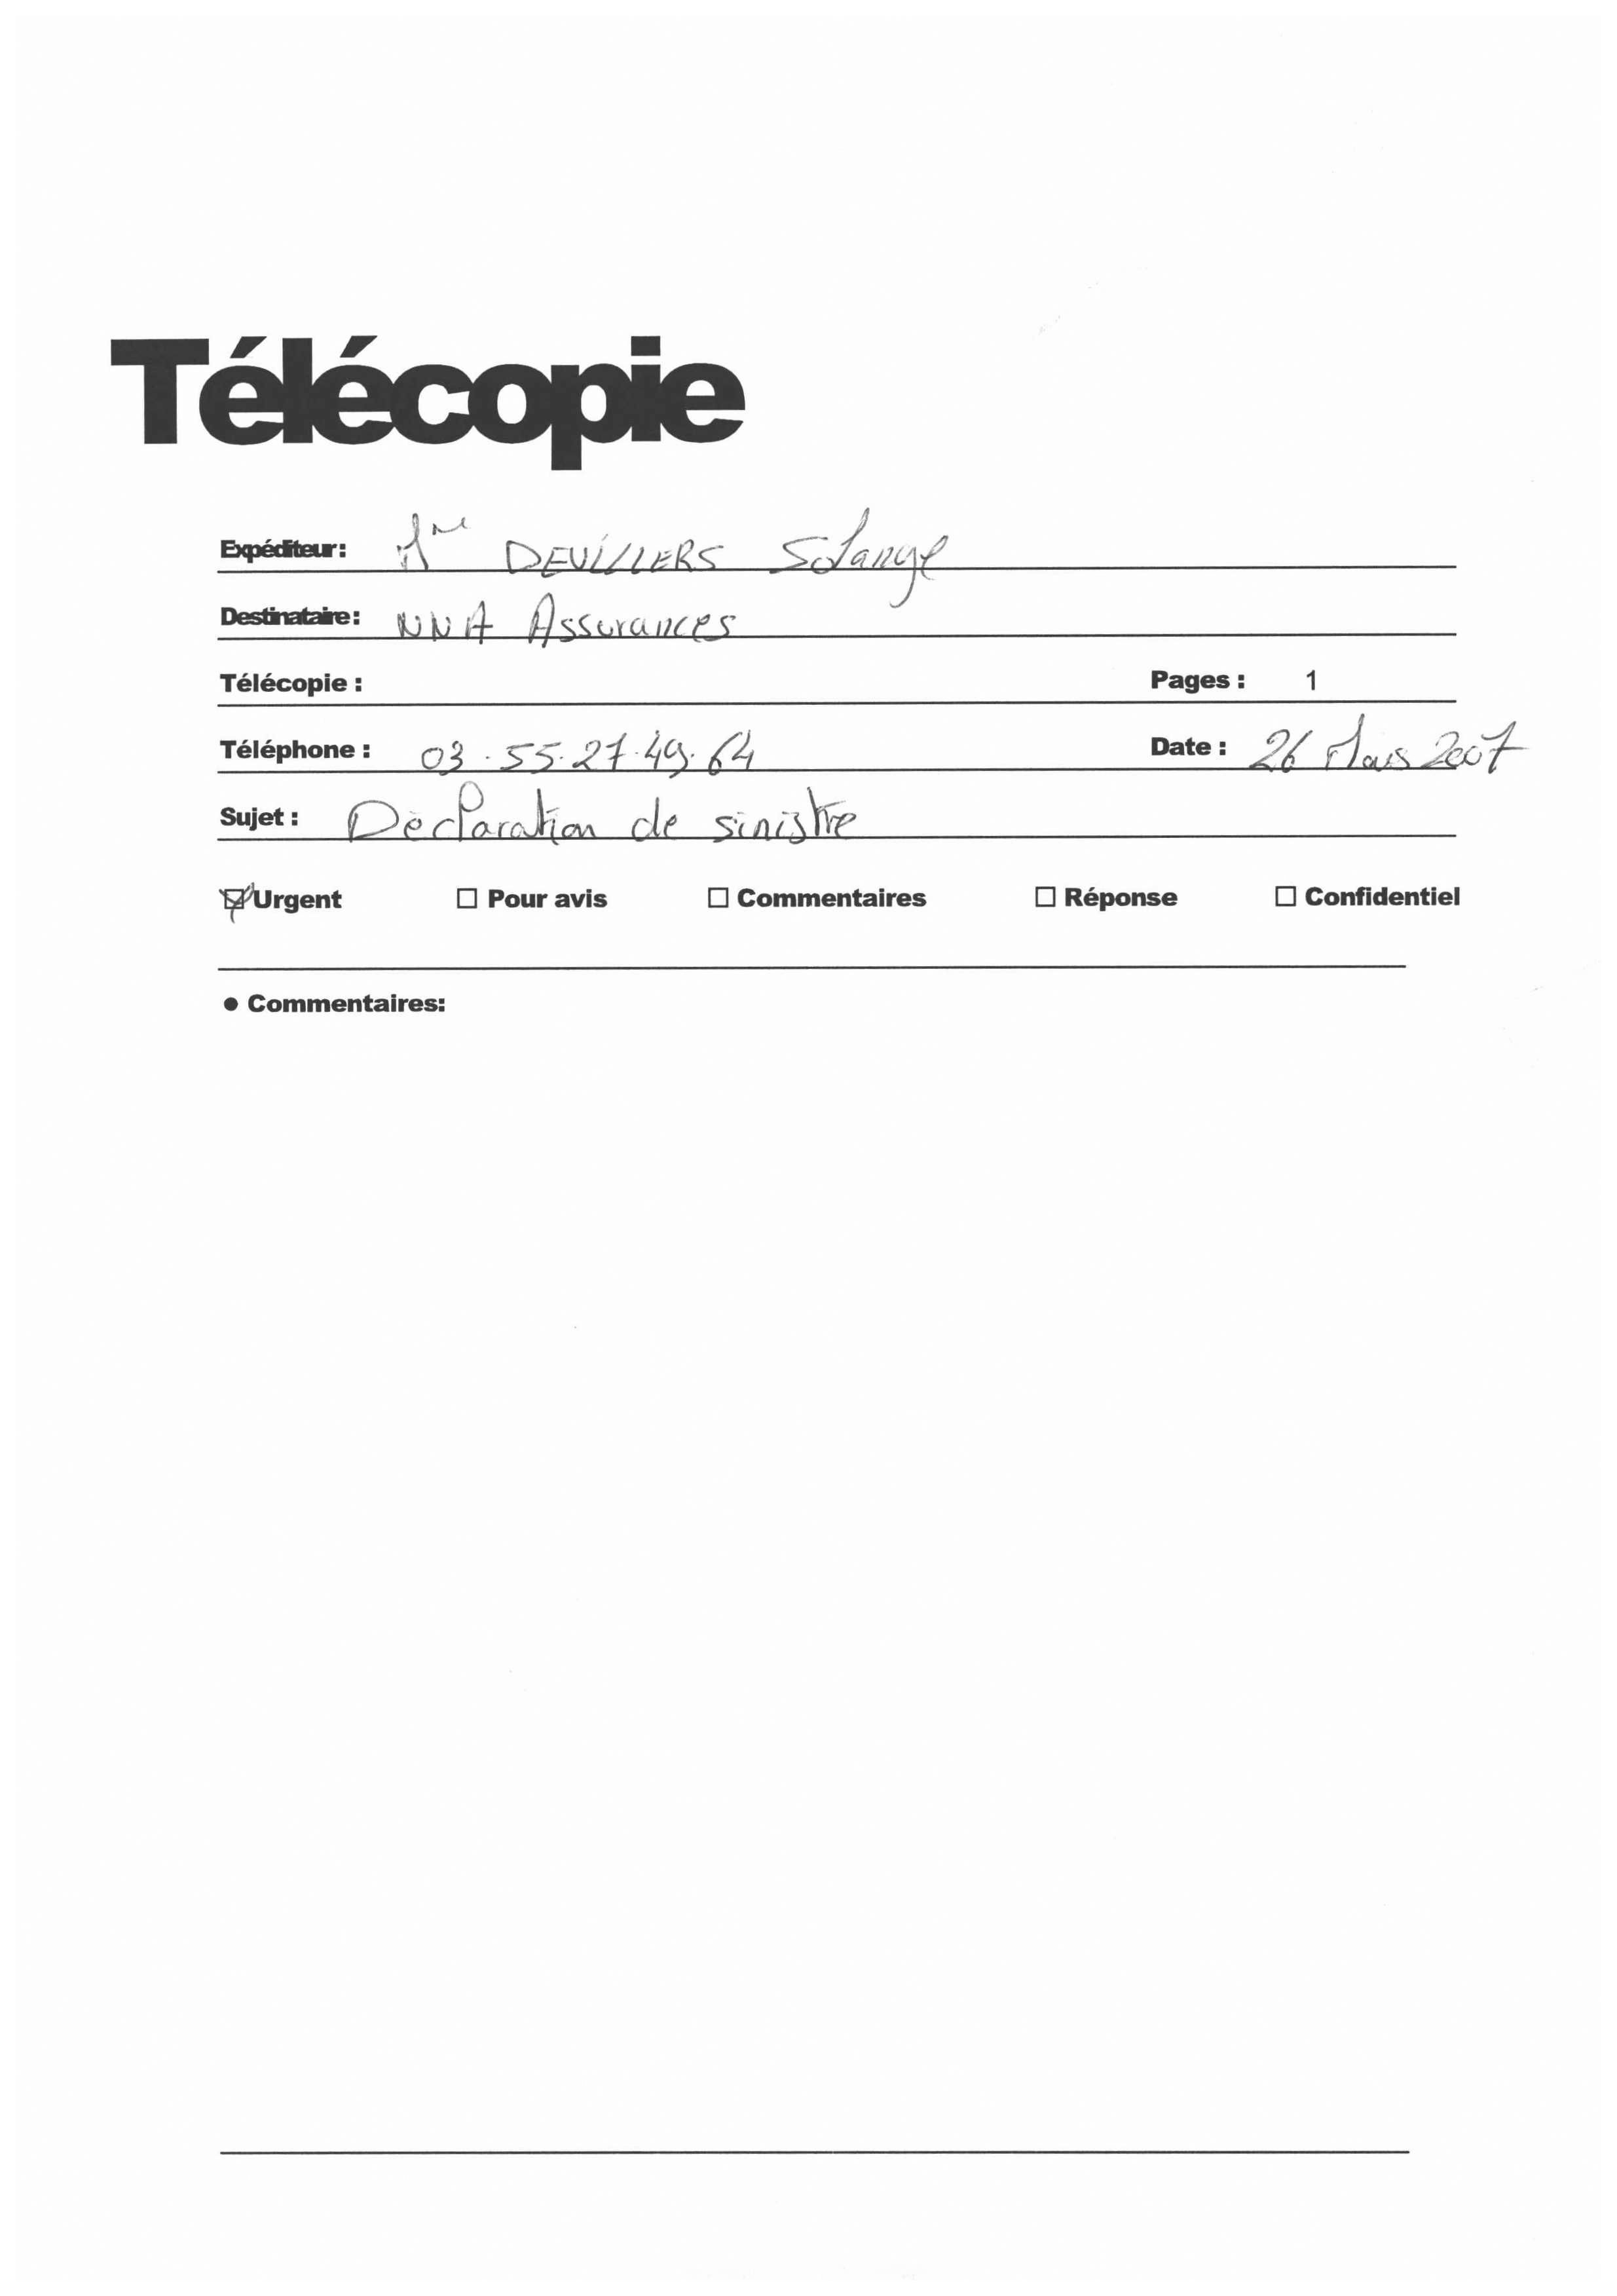 Télécopie
Expéditeur: Mme DEVILLERS Solange
Destinataire: NNA Assurances
Télécopie :
Pages : 1
Téléphone : 03.55.27.49.64
Date : 26 Mars 2007
Sujet : Déclaration de sinistre
Urgent Pour avis Commentaires Réponse Confidentiel
● Commentaires: